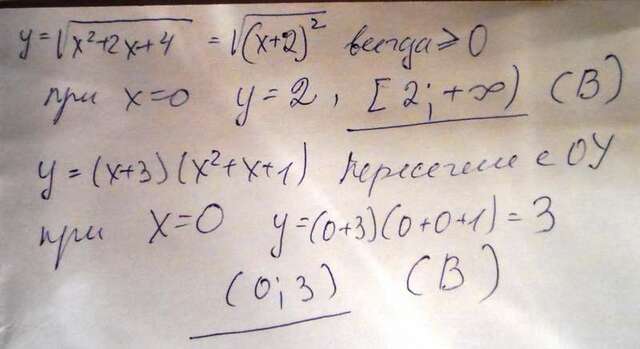 y=√x²+2x+4 = √(x+2)² всегда ≥ 0
при x=0 y=2, [2; +∞) (В)
y=(x+3)(x²+x+1) Пересечение с ОУ
при x=0 y=(0+3)(0+0+1)=3
(0;3) (В)